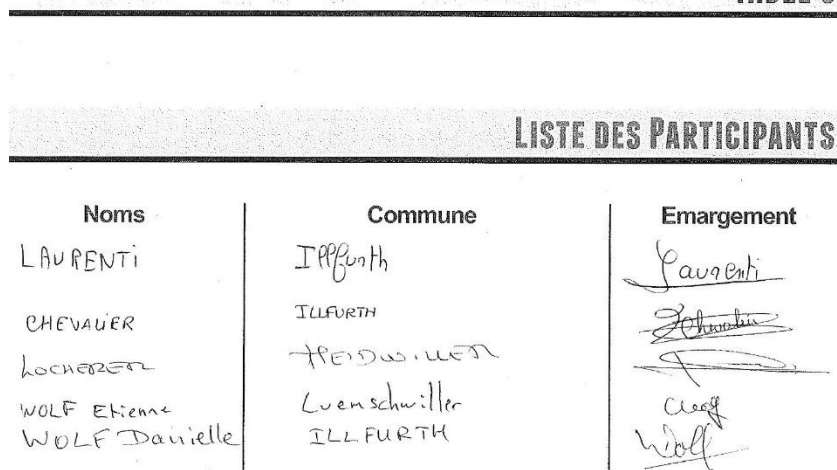 LISTE DES PARTICIPANTS
Noms Commune Emargement
LAURENTI Illfurth Laurenti
CHEVALIER ILLFURTH
LOCHERER HEIDWILLER
WOLF Etienne Luemschwiller
WOLF Danielle ILLFURTH Wolf